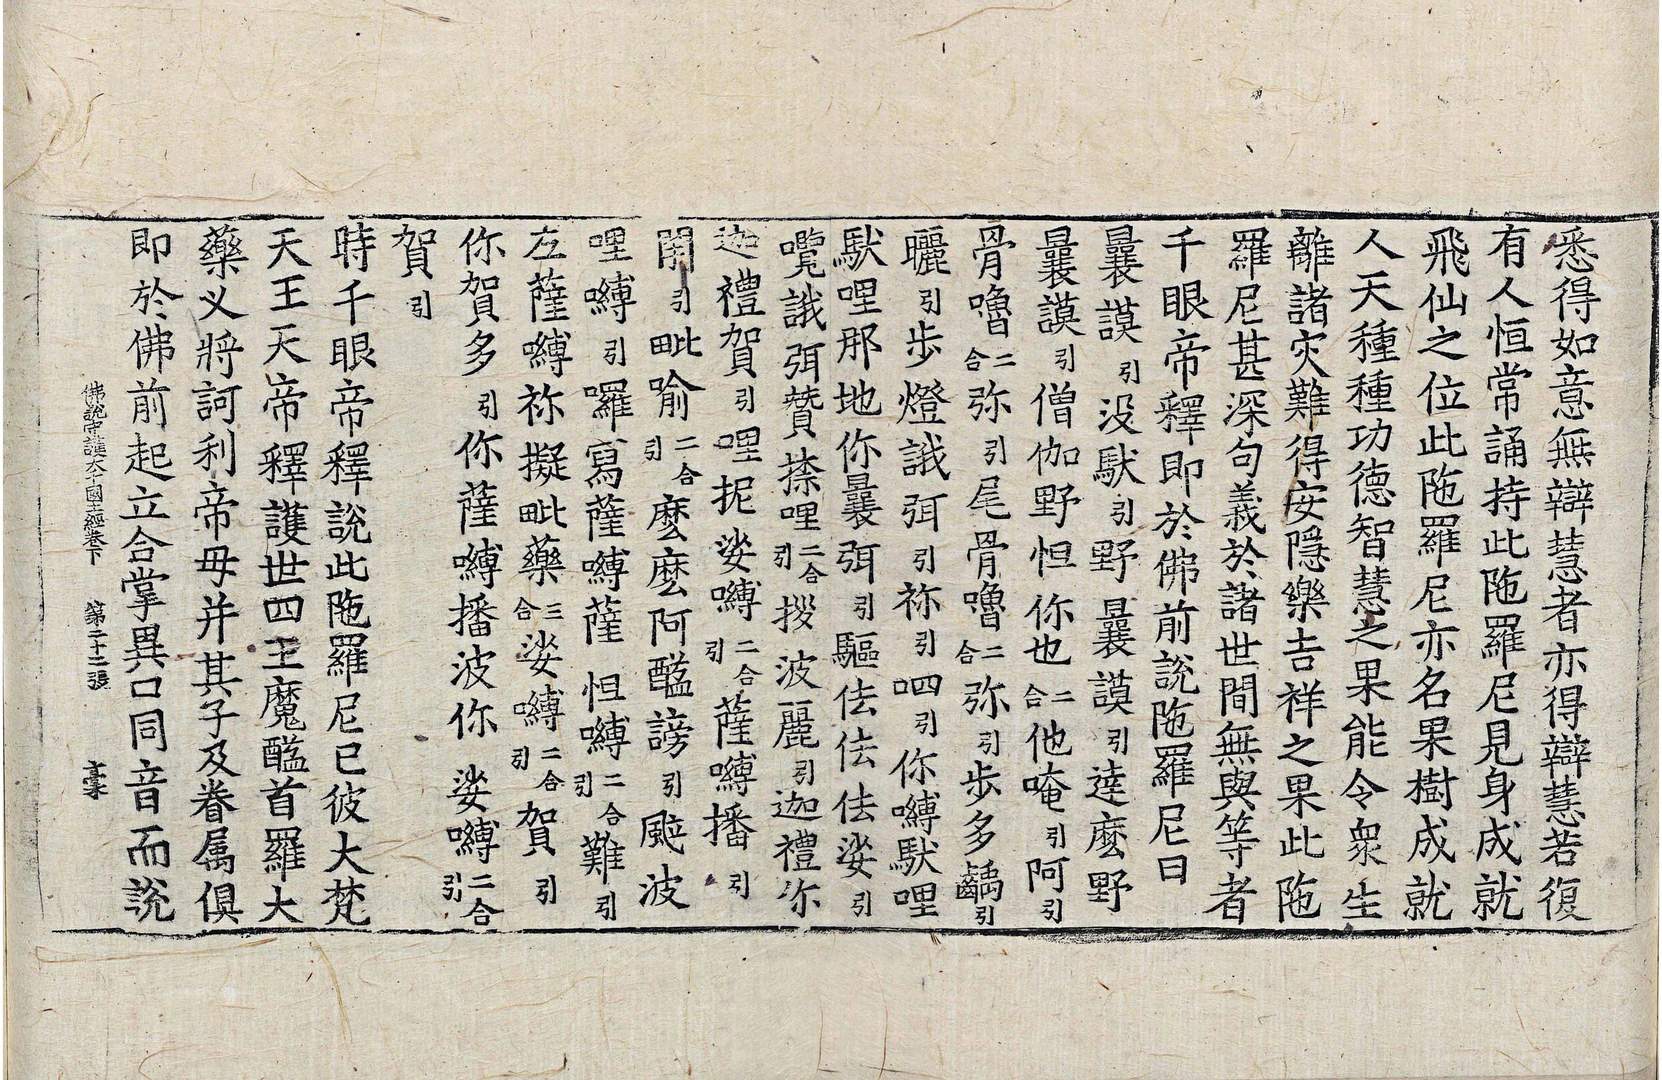 悉得如意無辯慧者亦得辯慧若復
有人恒常誦持此陁羅尼見身成就
飛仙之位此陁羅尼亦名果樹成就
人天種種功德智慧之果能令衆生
離諸灾難得安隱樂吉祥之果此陁
羅尼甚深句義於諸世間無與等者
千眼帝釋即於佛前說陁羅尼曰
曩謨引没馱引野曩謨引達麽野
曩謨引僧伽野怛你也二合他唵引阿引
骨嚕二合弥引尾骨嚕二合弥引步多齲引
曬引步燈誐弭引祢引呬引你嚩馱哩
馱哩那地你曩弭引驅佉佉佉娑引
嚂誐弭贊捺哩二合引拶波麗引迦禮弥
迦禮賀引哩抳娑嚩二合引薩嚩播引
開引毗喻二合引麽麽阿醯謗引颰波
哩嚩引囉寫薩嚩薩怛嚩二合引難引
左薩嚩祢擬毗藥三合娑嚩二合引賀引
你賀多引你薩嚩播波你娑嚩二合引
賀引
時千眼帝釋說此陁羅尼已彼大梵
天王天帝釋護世四王魔醯首羅大
藥叉將訶利帝母并其子及眷属俱
即於佛前起立合掌異口同音而說
佛說守護大千國土經卷下 第二十二張 豪